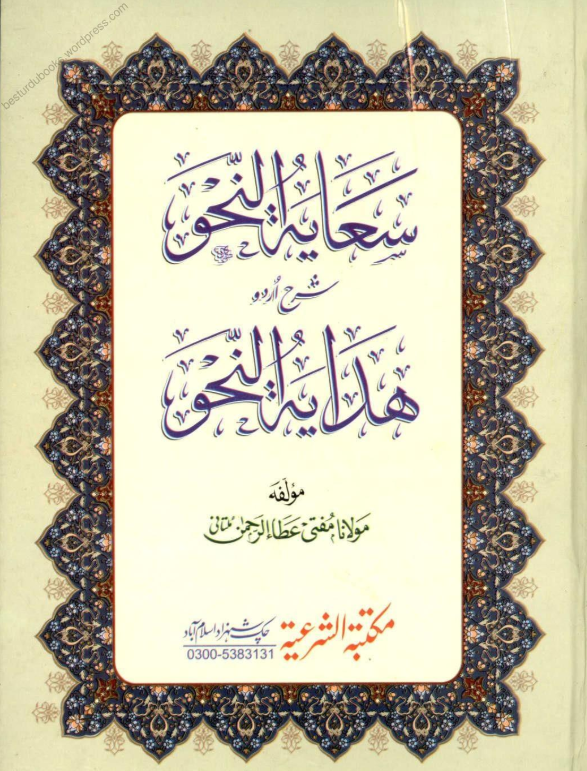 besturdubooks.wordpress.com
سعایۃ النّحو
شرح اُردو
ھدایۃ النّحو
مؤلفہ
مولانا مُفتی عطاء الرحمٰن مُلتانی
مکتبۃ الشرعیۃ
چک شہزاد اسلام آباد
0300-5383131